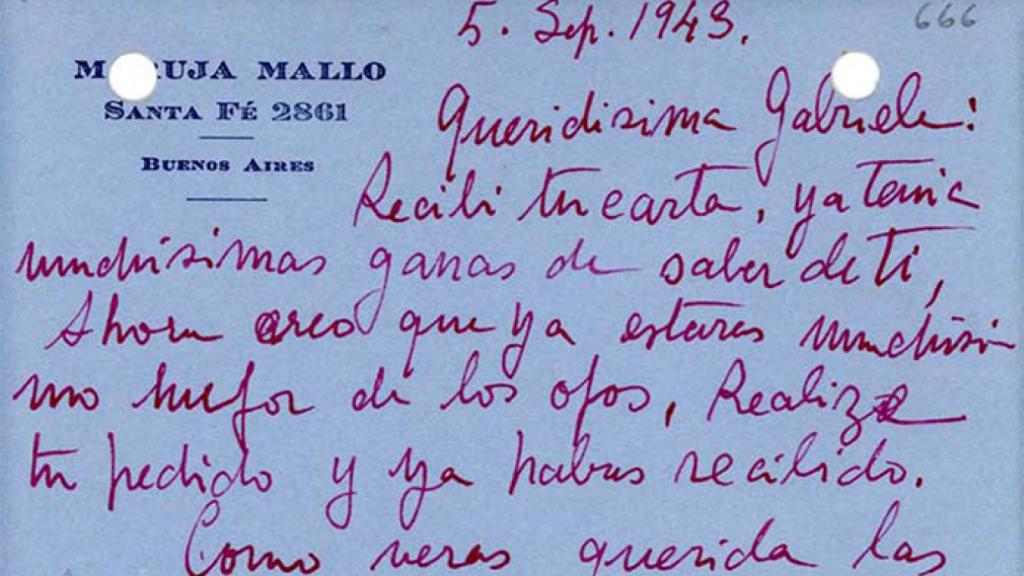 5. Sep. 1943.
666
M RUJA MALLO
SANTA FÉ 2861
BUENOS AIRES
Queridisima Gabriela:
Recibi tu carta, ya tenia
muchisimas ganas de saber de ti,
Ahora creo que ya estaras muchisi
mo mejor de los ojos, Realize
tu pedido y ya habras recibido.
Como veras querida las